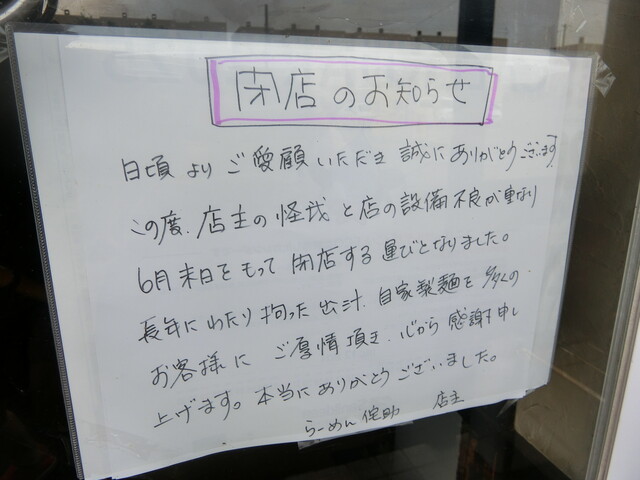 閉店のお知らせ
日頃よりご愛顧いただき誠にありがとうございます
この度、店主の怪我と店の設備不良が重なり
6月末日をもって閉店する運びとなりました。
長年にわたり拘った出汁、自家製麺を多くの
お客様にご厚情頂き、心から感謝申し
上げます。本当にありがとうございました。
らーめん侘助 店主